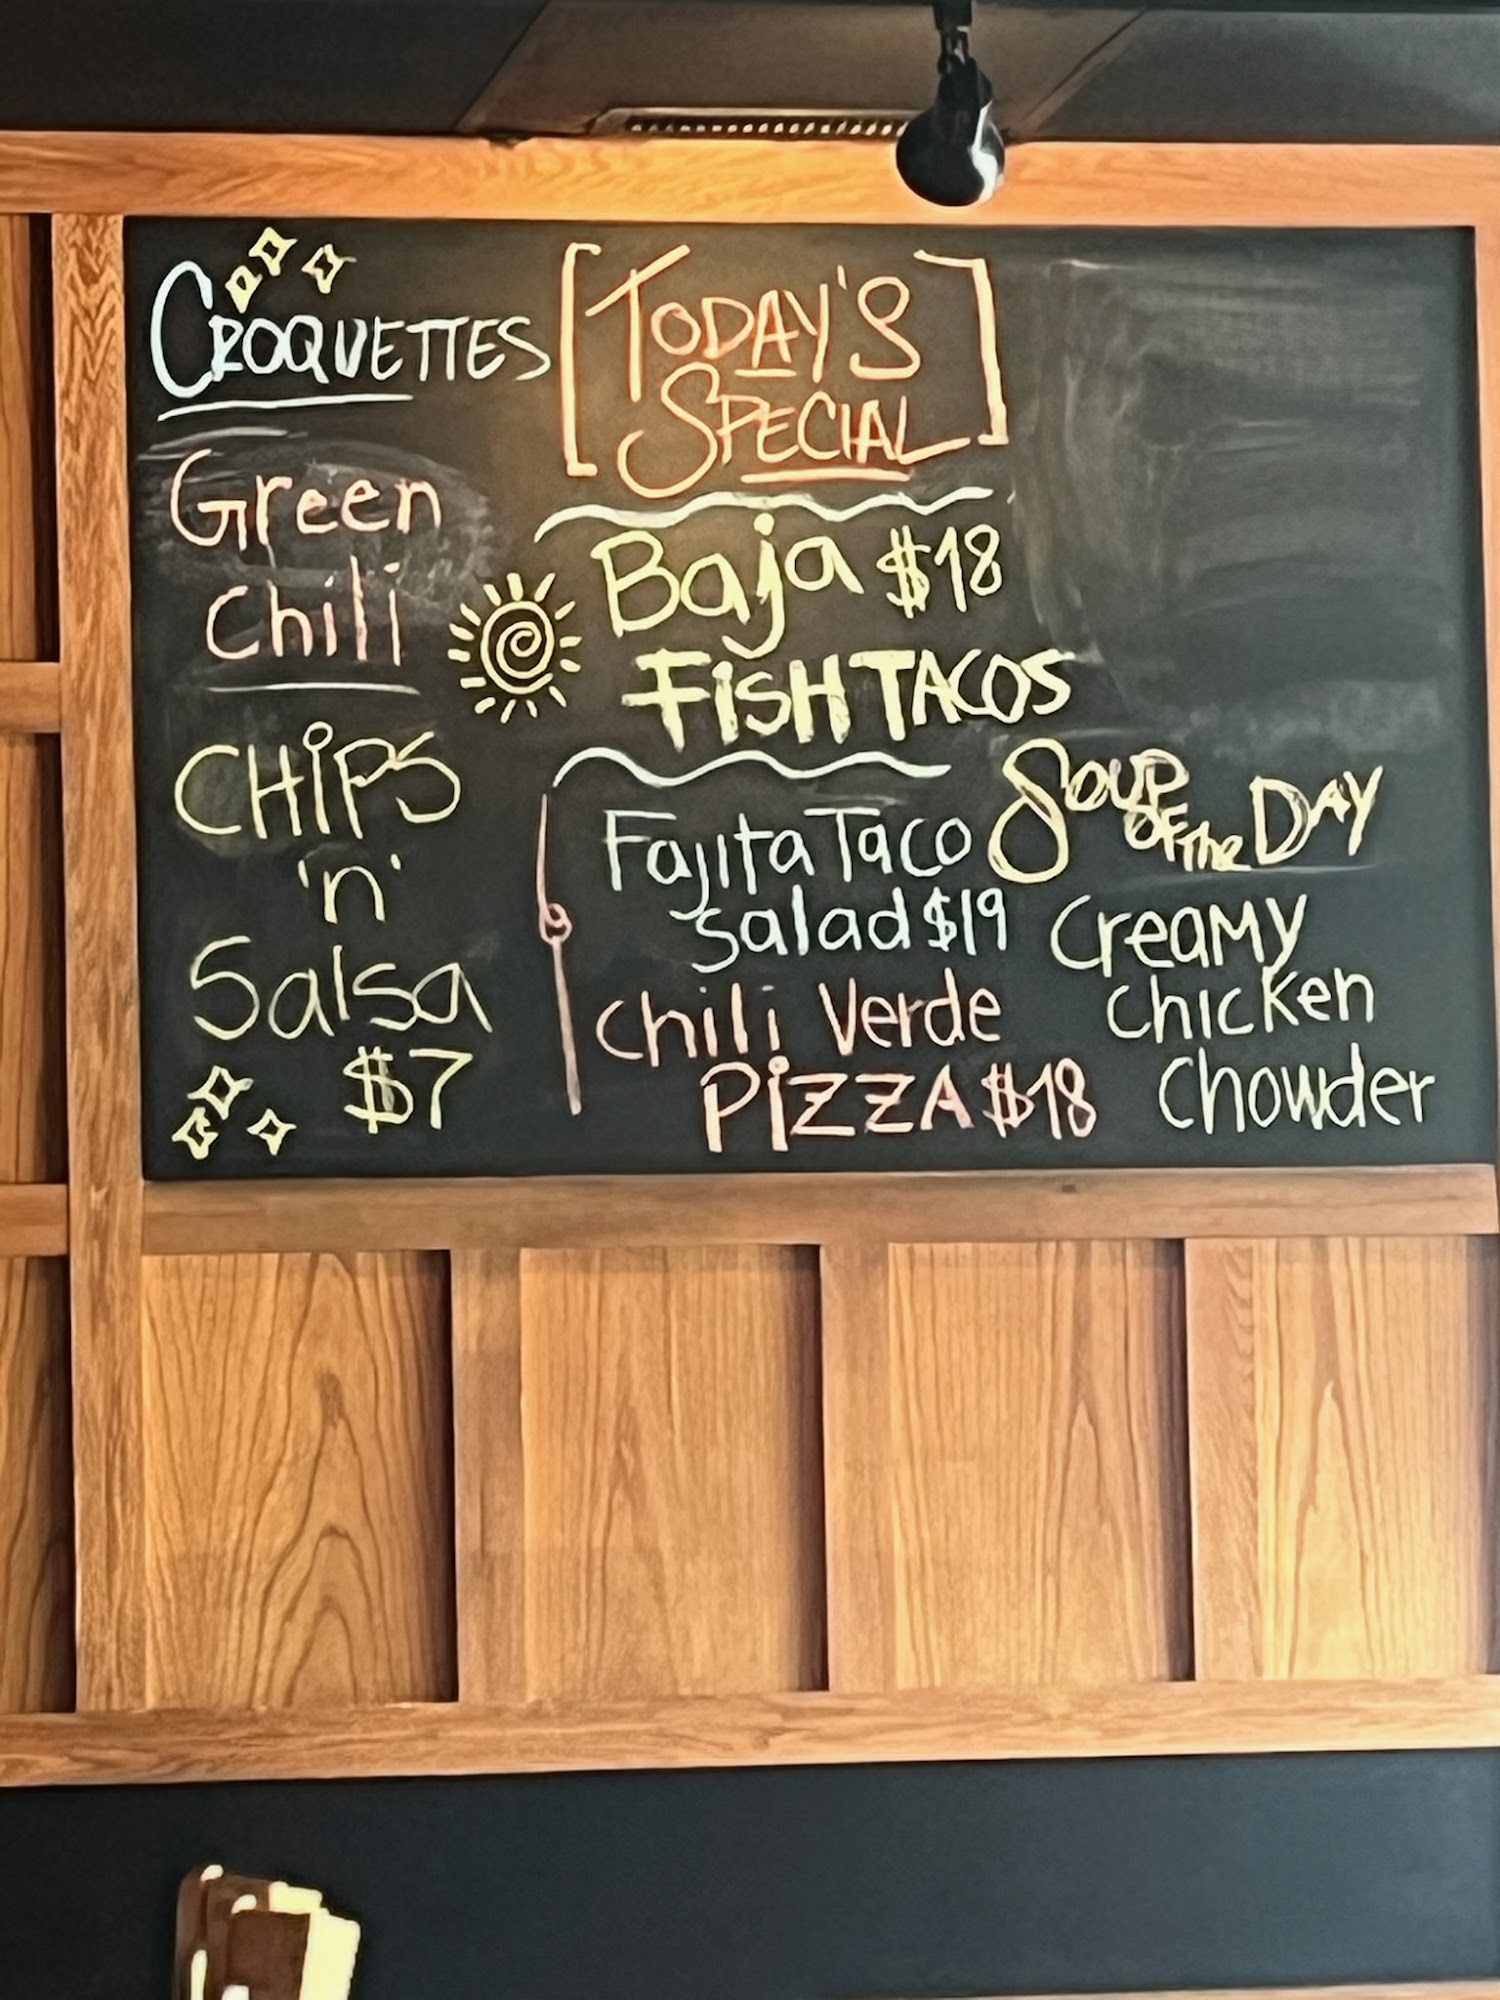 CROQUETTES
Green
Chili
CHIPS
'n'
Salsa
$7
[TODAY'S
SPECIAL]
Baja $18
FISH TACOS
Fajita Taco
Salad $19
Chili Verde
PIZZA $18
SOUP
OF The DAY
Creamy
Chicken
Chowder